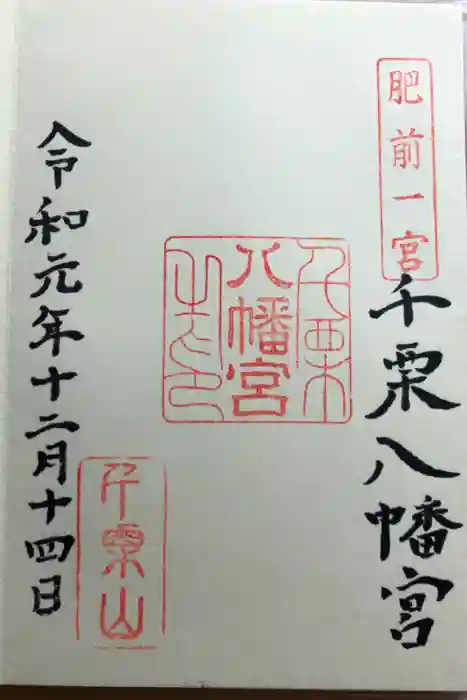 肥前一宮
千栗八幡宮
千栗
八幡宮
之印
令和元年十二月十四日
千栗山